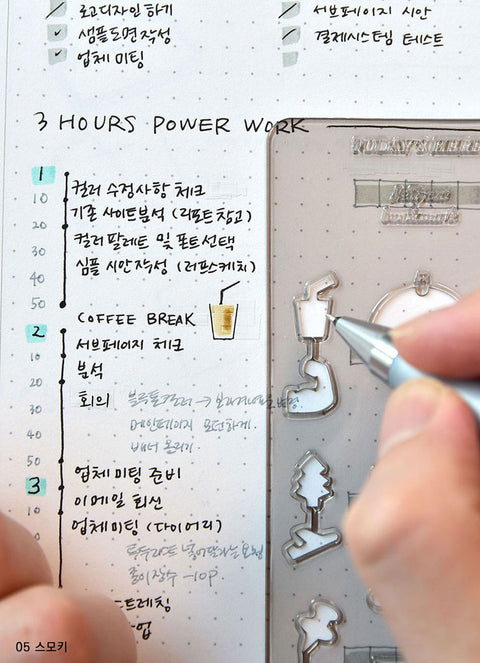 로고디자인하기
샘플도면작성
업체 미팅
서브페이지 시안
결제시스템 테스트
3 HOURS POWER WORK
1
컬러 수정사항 체크
10
기존 사이트분석 (리포트참고)
20
컬러팔레트 및 폰트선택
30
심플 시안작성 (러프스케치)
40
50
COFFEE BREAK
2
서브페이지 체크
10
분석
20
회의
메인페이지 모던하게.
30
배너 올리기.
40
50
업체미팅 준비
3
이메일 회신
10
업체미팅 (다이어리)
종이장수 -10P.
05 스모키